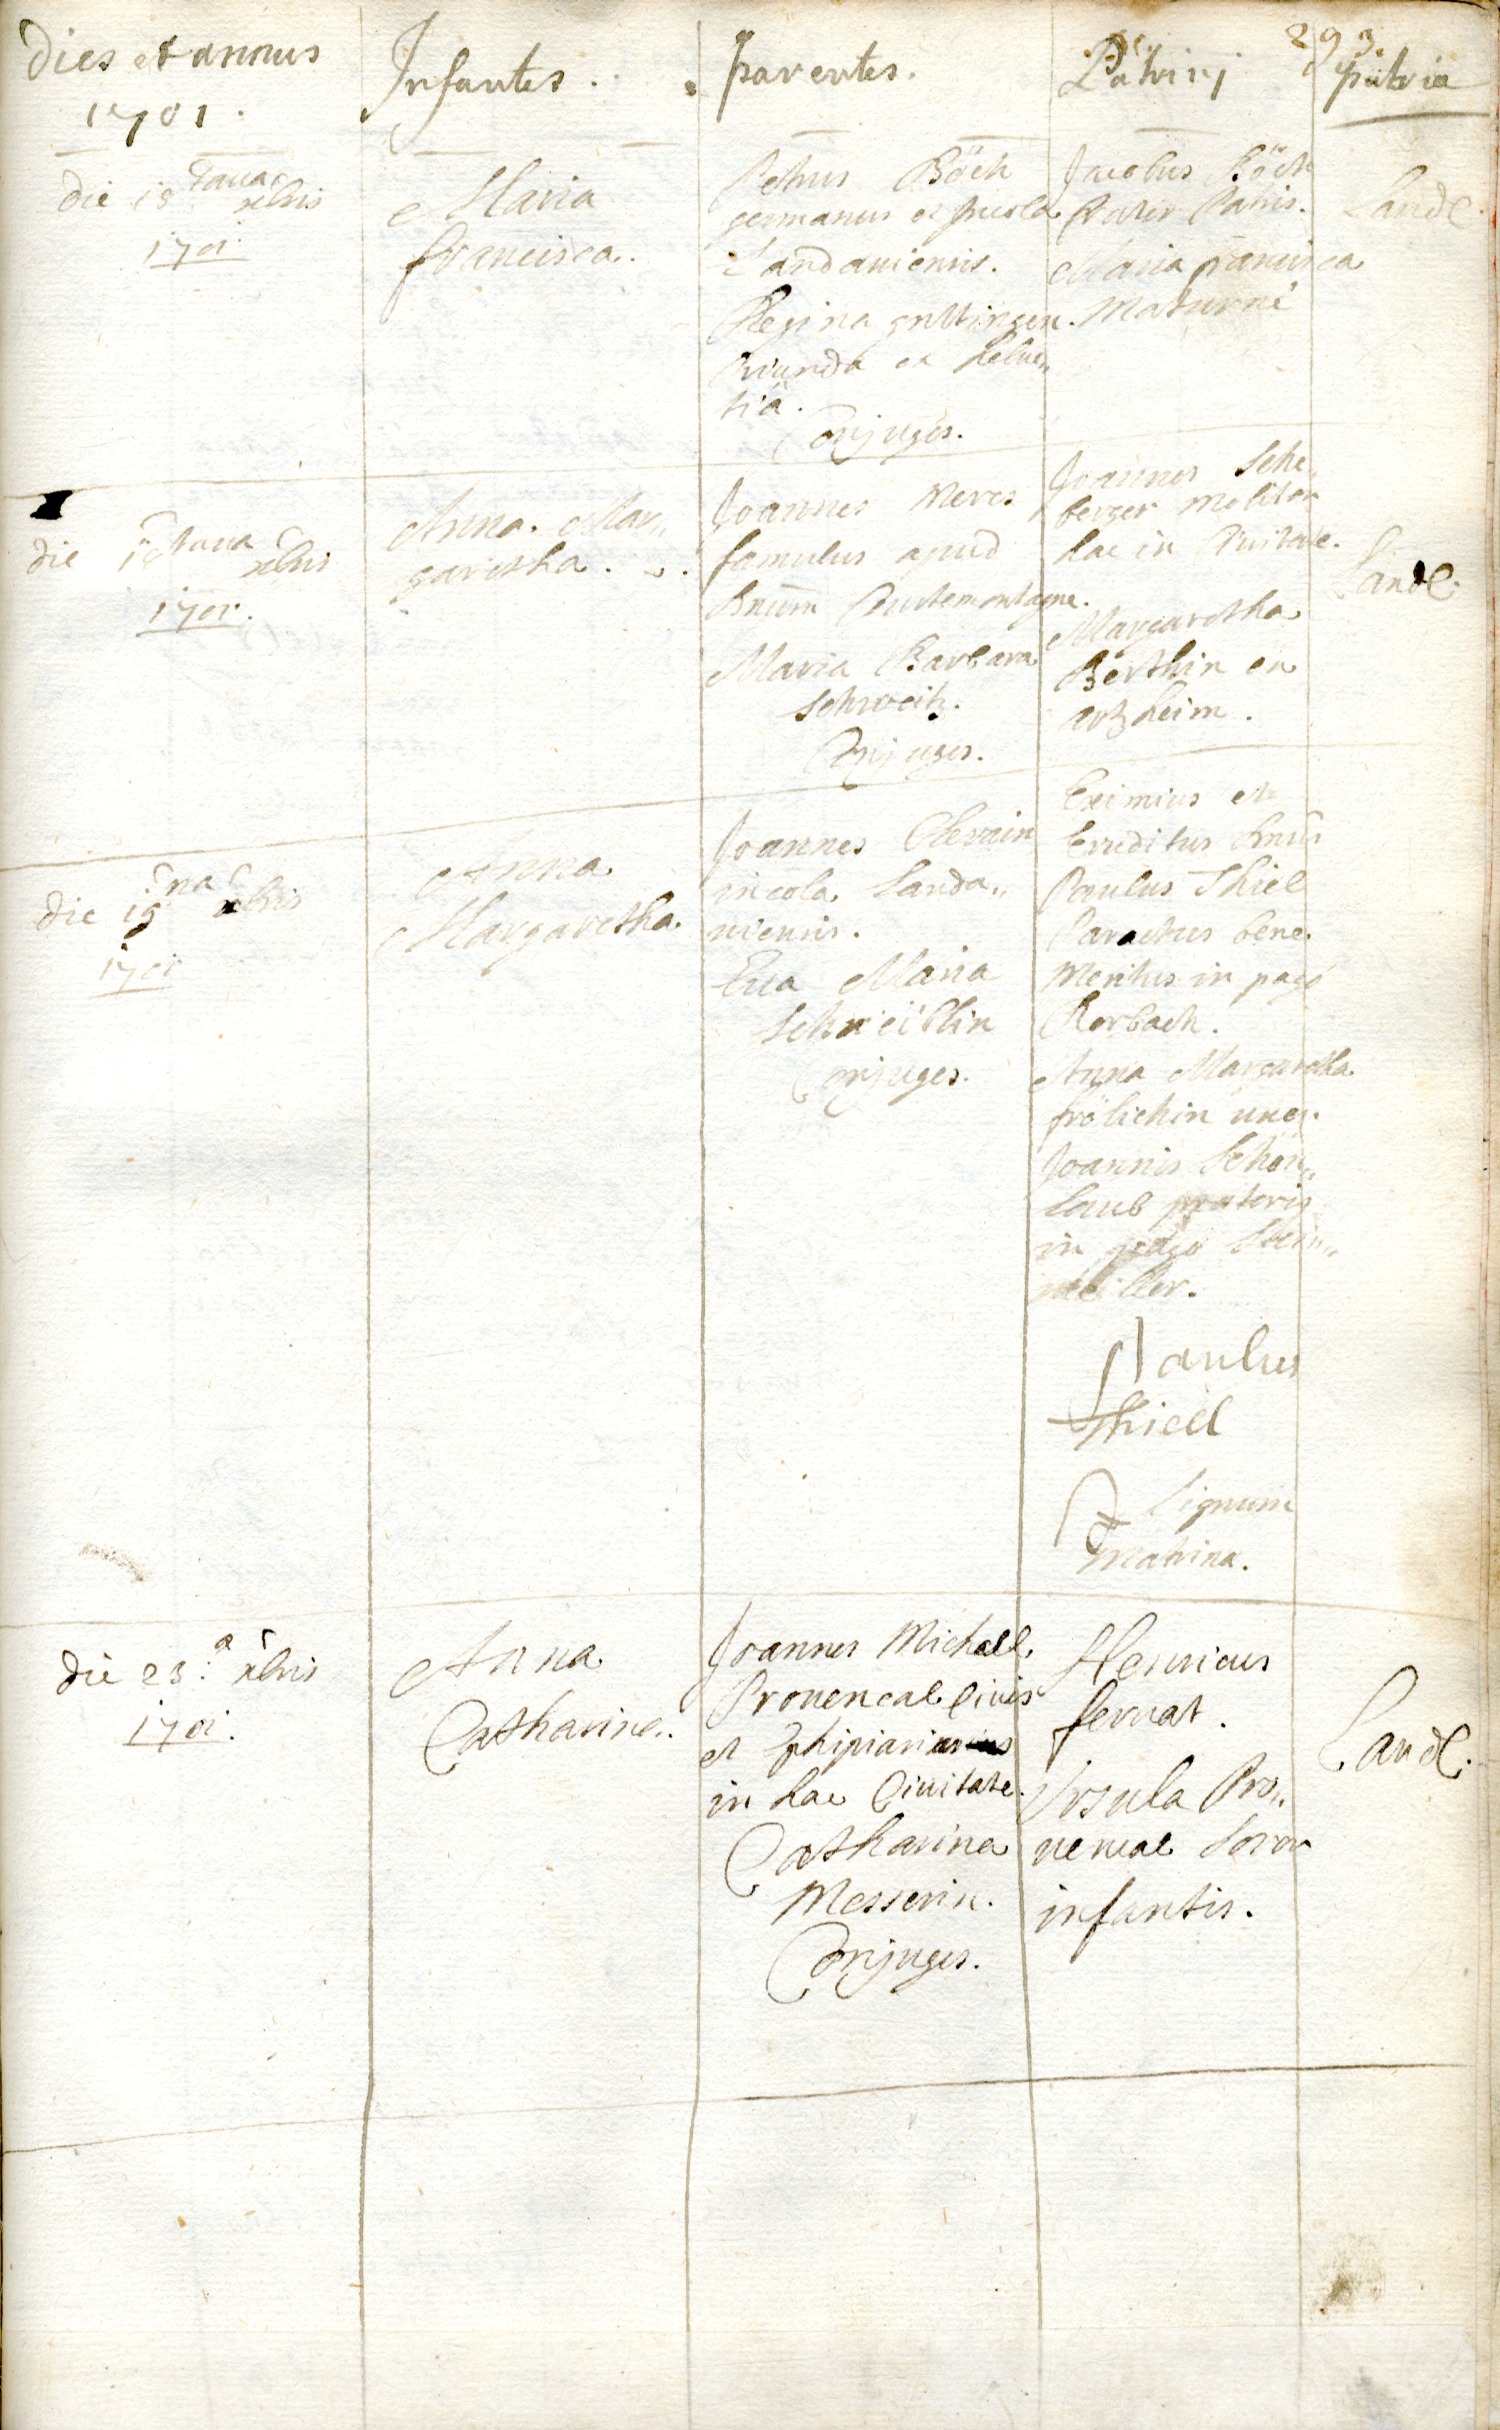 293.
Dies et annus
1701.
Infantes.
parentes.
Patrinj
patria
Die 18 tava xbris
1701.
Maria
francisca.
Petrus Böch
germanus et Incola
Landauiensis.
Regina
Oriunda ex helue„
tiâ.
Conjuges.
Jacobus Böch
frater Patris.
Maria francisca
Maturné
Land.
die 18 tava xbris
1701.
Anna. Mar„
garetha.
Joannes Meres
famulus apud
Dnum Courtemontagne.
Maria Barbara
Schweitz.
Conjuges.
Joannes Sche„
berger Molitor
hac in Ciuitate.
Margaretha
Berthin ex
artzheim.
Land.
Die 19 na xbris
1701
Anna
Margaretha.
Joannes Clevain
incola Landa„
uiensis.
Eua Maria
Schneiblin
Conjuges.
Eximius et
Eruditus Dnus
Paulus Thiel
Parochus bene
Meritus in pago
Rorbach.
Anna Margaretha
frölichin uxor
Joannis Schön„
laub pretoris
in pago Stein„
weiller.
Paulus
Thiell
Signum
Matrina.
Die 23.a xbris
1701.
Anna
Catharina.
Joannes Michael
Prouencal Ciuis
et Ephipiarius
in hac Ciuitate.
Catharina
Messerin.
Conjuges.
Henricus
feruat.
Vrsula Pro„
uencal Soror
infantis.
Land.